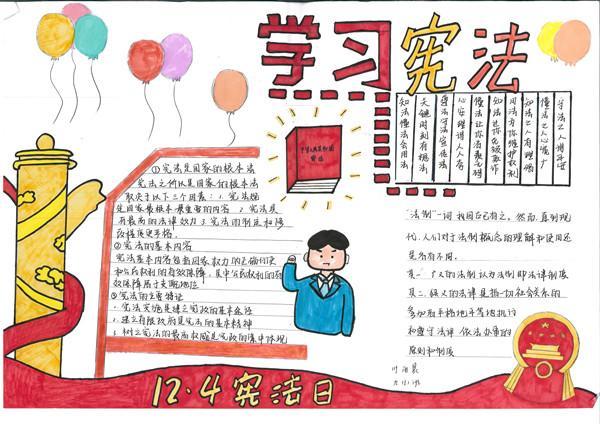 学习宪法
中华人民共和国
宪法
①宪法是国家的根本法
宪法之所以是国家的根本法
取决于以下三个因素：1.宪法规
定国家最根本最重要的内容 2.宪法具
有最高的法律效力 3.宪法的制定和修
改程序更严格.
②宪法的基本内容
宪法基本内容包括国家权力的正确行使
和公民权利的有效保障，其中公民权利的有
效保障居于支配地位
③宪法的主要特征
1.宪法实施是建立宪政的基本途径
2.建立有限政府是宪法的基本精神
3.树立宪法的最高权威是宪政的集中体现
学法之人
懂法之人心境广
知法之人有理循
用法有你维护权利
知法让你免被欺诈
懂法让你活最乏碍
心安理得人人有
遵法守法宣传法
关键时刻有稳法
知法懂法会用法
"法制"一词，我国古已有之，然而，直到现
代，人们对于法制概念的理解和使用还
是各有不同。
其一：广义的法制，认为法制即法律制度
其二：狭义的法律是指一切社会关系的
参加者严格地平等地执行
和遵守法律，依法办事的
原则和制度
12·4宪法日